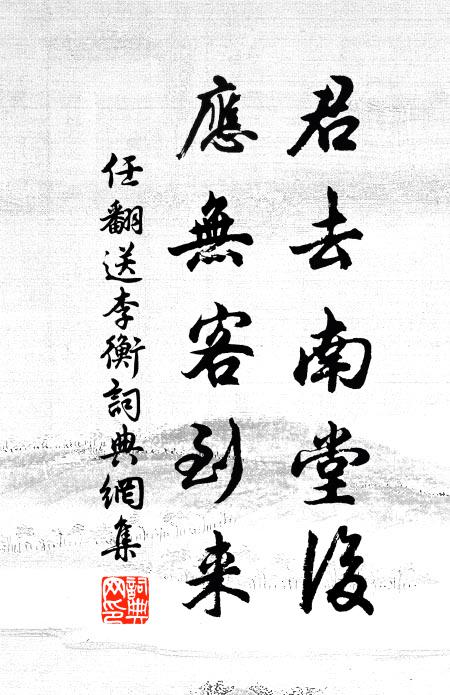 君去南堂後
應無客到来
任翻送李衡詞典網集
詞典網印